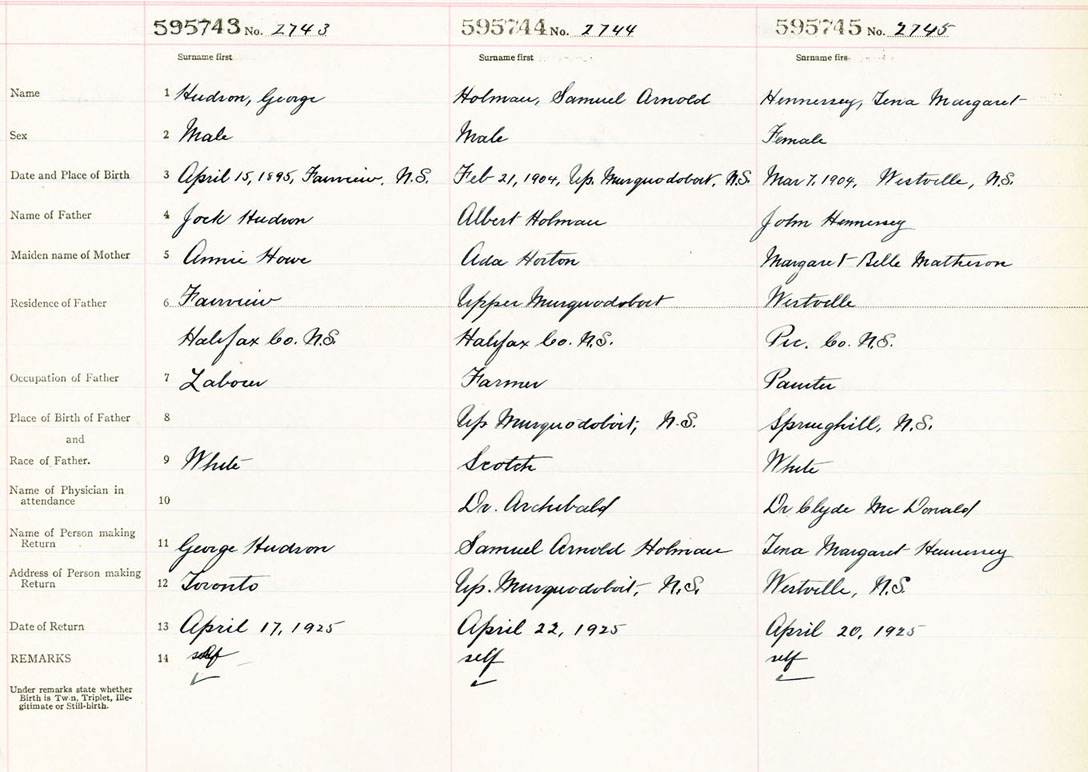 595743 No. 2743 595744 No. 2744 595745 No. 2745
Surname first Surname first Surname firs
Name 1 Hudson, George Holman, Samuel Arnold Hennessey, Tena Margaret
Sex 2 Male Male Female
Date and Place of Birth 3 April 15, 1895, Fairview, N.S. Feb 21, 1904, Up. Musquodoboit, N.S. Mar 7, 1904, Westville, N.S.
Name of Father 4 Jock Hudson Albert Holman John Hennessey
Maiden name of Mother 5 Annie Howe Ada Horton Margaret Belle Matheson
Residence of Father 6 Fairview Upper Musquodoboit Westville
Halifax Co. N.S. Halifax Co. N.S. Pic. Co. N.S.
Occupation of Father 7 Labour Farmer Painter
Place of Birth of Father 8 Up Musquodoboit, N.S. Springhill, N.S.
and
Race of Father. 9 White Scotch White
Name of Physician in
attendance 10 Dr. Archibald Dr Clyde Mc Donald
Name of Person making
Return 11 George Hudson Samuel Arnold Holman Tena Margaret Hennessey
Address of Person making
Return 12 Toronto Up. Musquodoboit, N.S. Westville, N.S.
Date of Return 13 April 17, 1925 April 22, 1925 April 20, 1925
REMARKS 14 self self self
Under remarks state whether
Birth is Twin, Triplet, Ille-
gitimate or Still-birth.